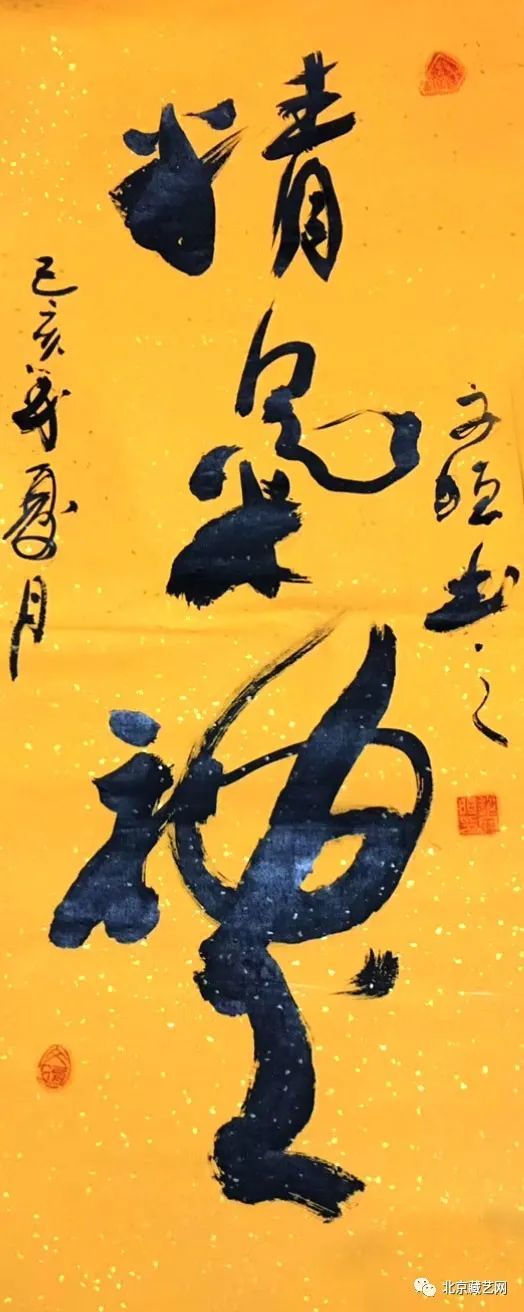 精氣神
文书之
己亥年夏月
北京藏艺网